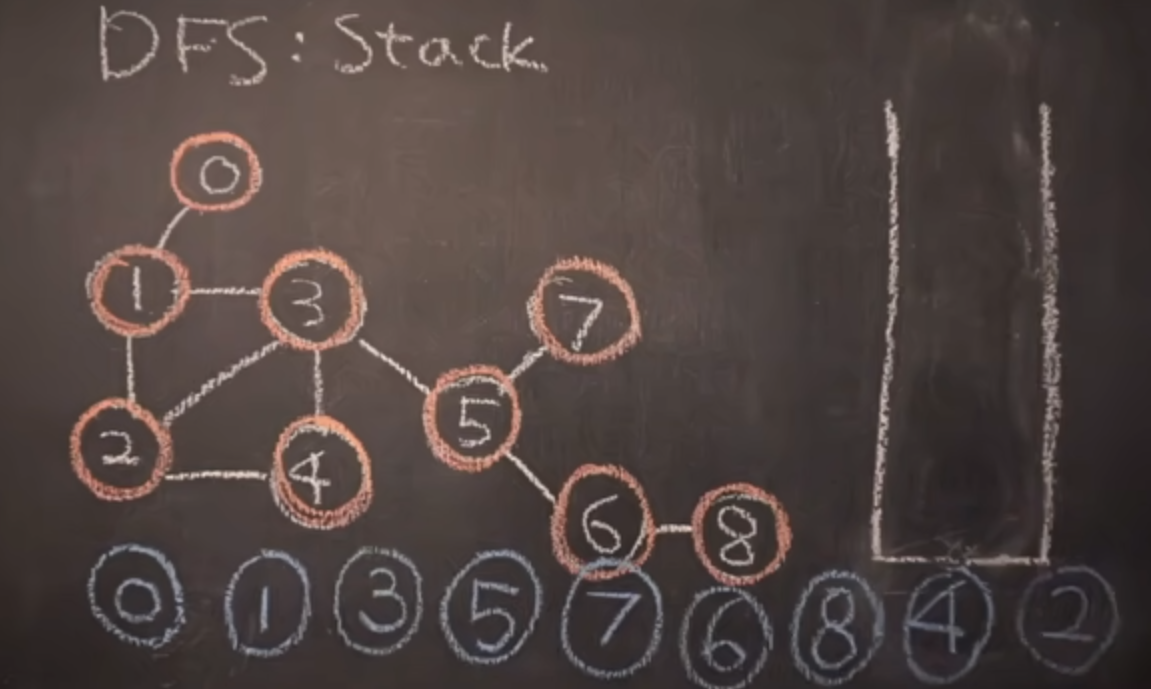 DFS: Stack
0
1 3 7
5
2 4
6 8
0 1 3 5 7 6 8 4 2